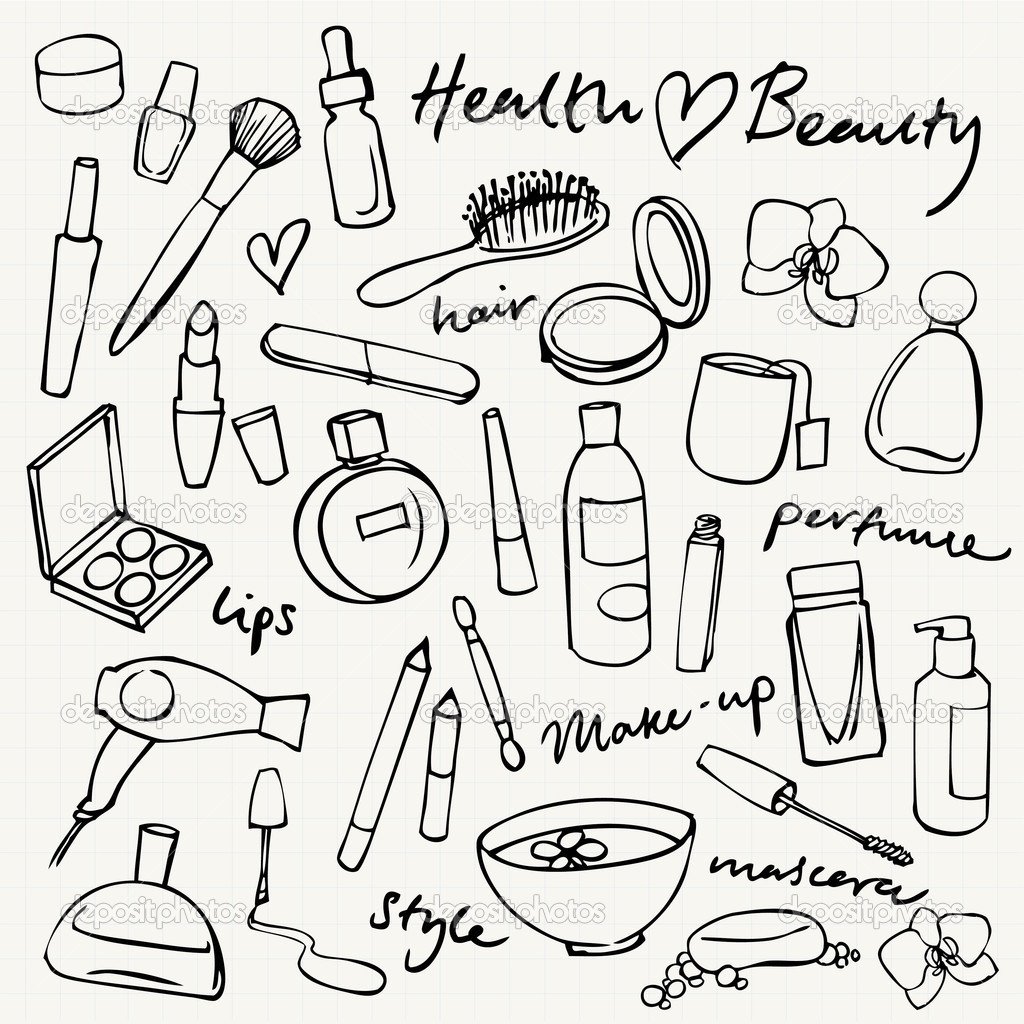 Health Beauty
hair
perfume
lips
Make-up
mascara
style
depositphotos
depositphotos
depositphotos
depositphotos
depositphotos
depositphotos
depositphotos
depositphotos
depositphotos
depositphotos
depositphotos
depositphotos
© depositphotos
depositphotos
depositphotos
depositphotos
depositphotos
depositphotos
depositphotos
depositphotos